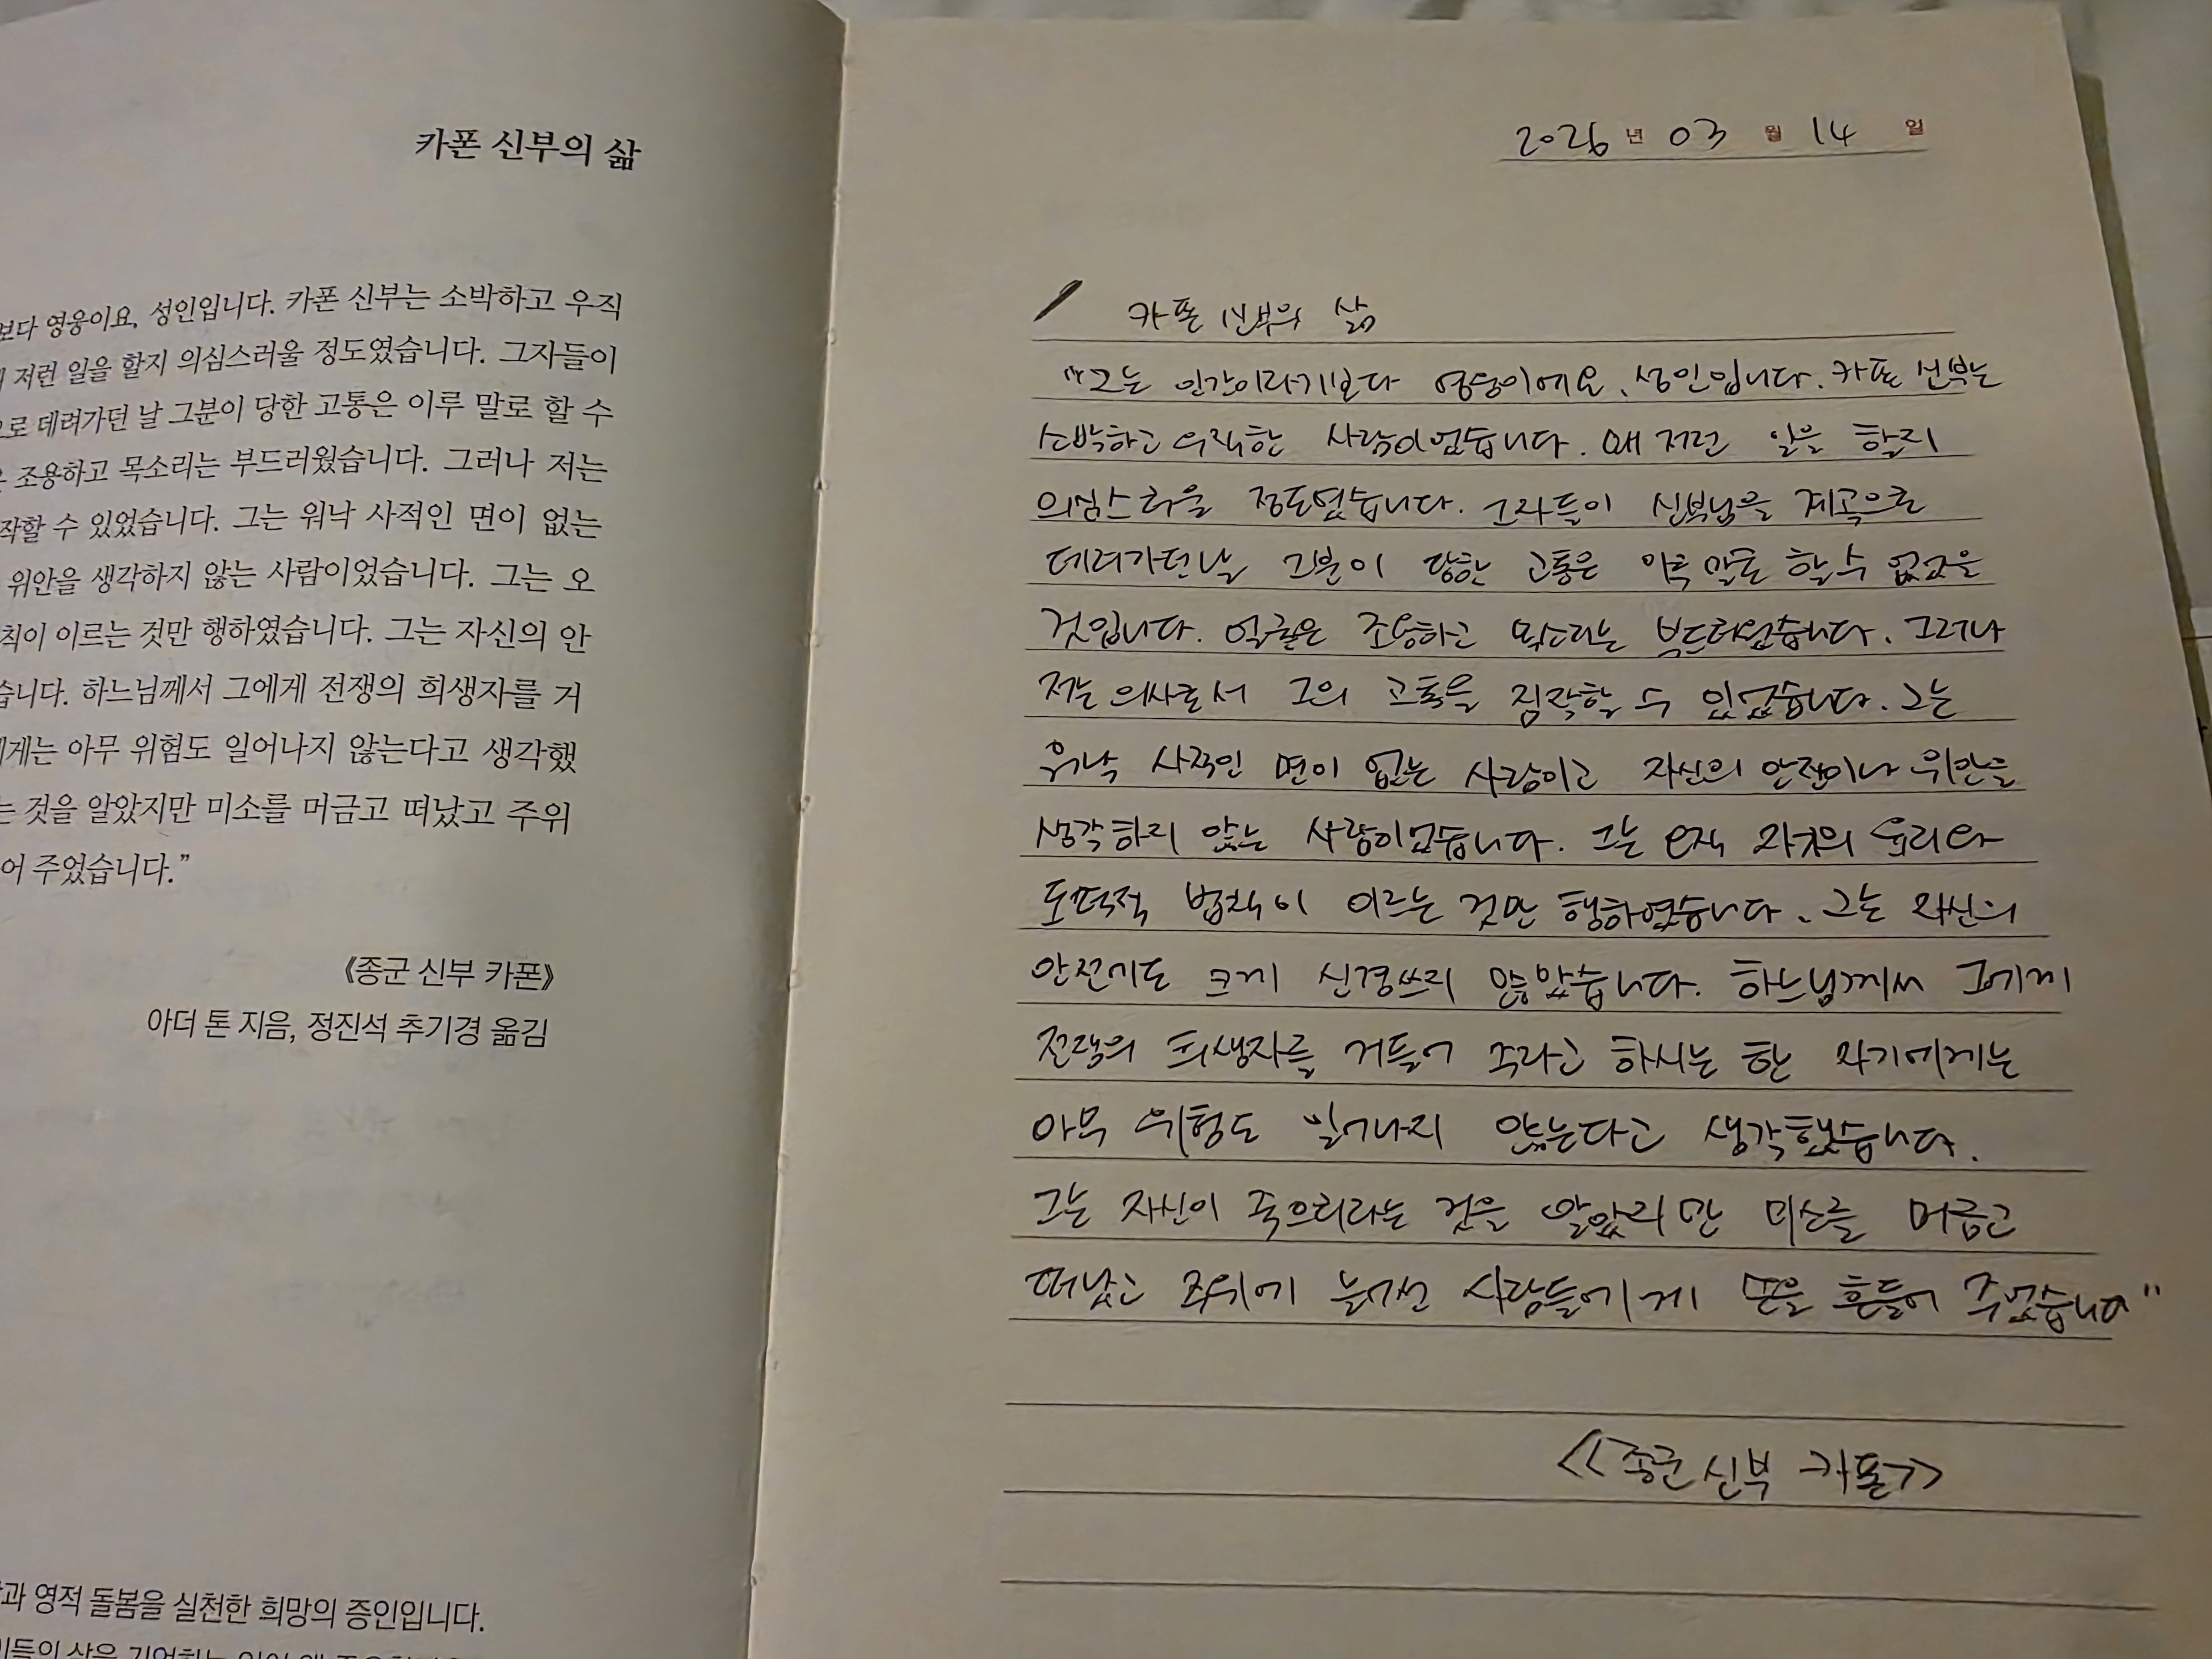 카폰 신부의 삶
보다 영웅이요, 성인입니다. 카폰 신부는 소박하고 우직
저런 일을 할지 의심스러울 정도였습니다. 그자들이
으로 데려가던 날 그분이 당한 고통은 이루 말로 할 수
조용하고 목소리는 부드러웠습니다. 그러나 저는
작할 수 있었습니다. 그는 워낙 사적인 면이 없는
위안을 생각하지 않는 사람이었습니다. 그는 오
칙이 이르는 것만 행하였습니다. 그는 자신의 안
습니다. 하느님께서 그에게 전쟁의 희생자를 거
에게는 아무 위험도 일어나지 않는다고 생각했
는 것을 알았지만 미소를 머금고 떠났고 주위
어 주었습니다.”
《종군 신부 카폰》
아더 톤 지음, 정진석 추기경 옮김
과 영적 돌봄을 실천한 희망의 증인입니다.
2026년 03월 14일
카폰 신부의 삶
"그는 인간이라기보다 영웅이에요, 성인입니다. 카폰 신부는
소박하고 우직한 사람이었습니다. 왜 저런 일을 할지
의심스러울 정도였습니다. 그자들이 신부님을 계곡으로
데려가던날 그분이 당한 고통은 이루 말로 할 수 없었을
것입니다. 얼굴은 조용하고 목소리는 부드러웠습니다. 그러나
저는 의사로서 그의 고통을 짐작할 수 있었습니다. 그는
워낙 사적인 면이 없는 사람이고 자신의 안전이나 위안을
생각하지 않는 사람이었습니다. 그는 오직 교회의 윤리와
도덕적 법칙이 이르는 것만 행하였습니다. 그는 자신의
안전에도 크게 신경쓰지 않았습니다. 하느님께서 그에게
전쟁의 희생자를 거들어 주라고 하시는 한 자기에게는
아무 위험도 일어나지 않는다고 생각했습니다.
그는 자신이 죽으리라는 것을 알았지만 미소를 머금고
떠났고 주위에 늘어선 사람들에게 손을 흔들어 주었습니다"
<<종군 신부 카폰>>